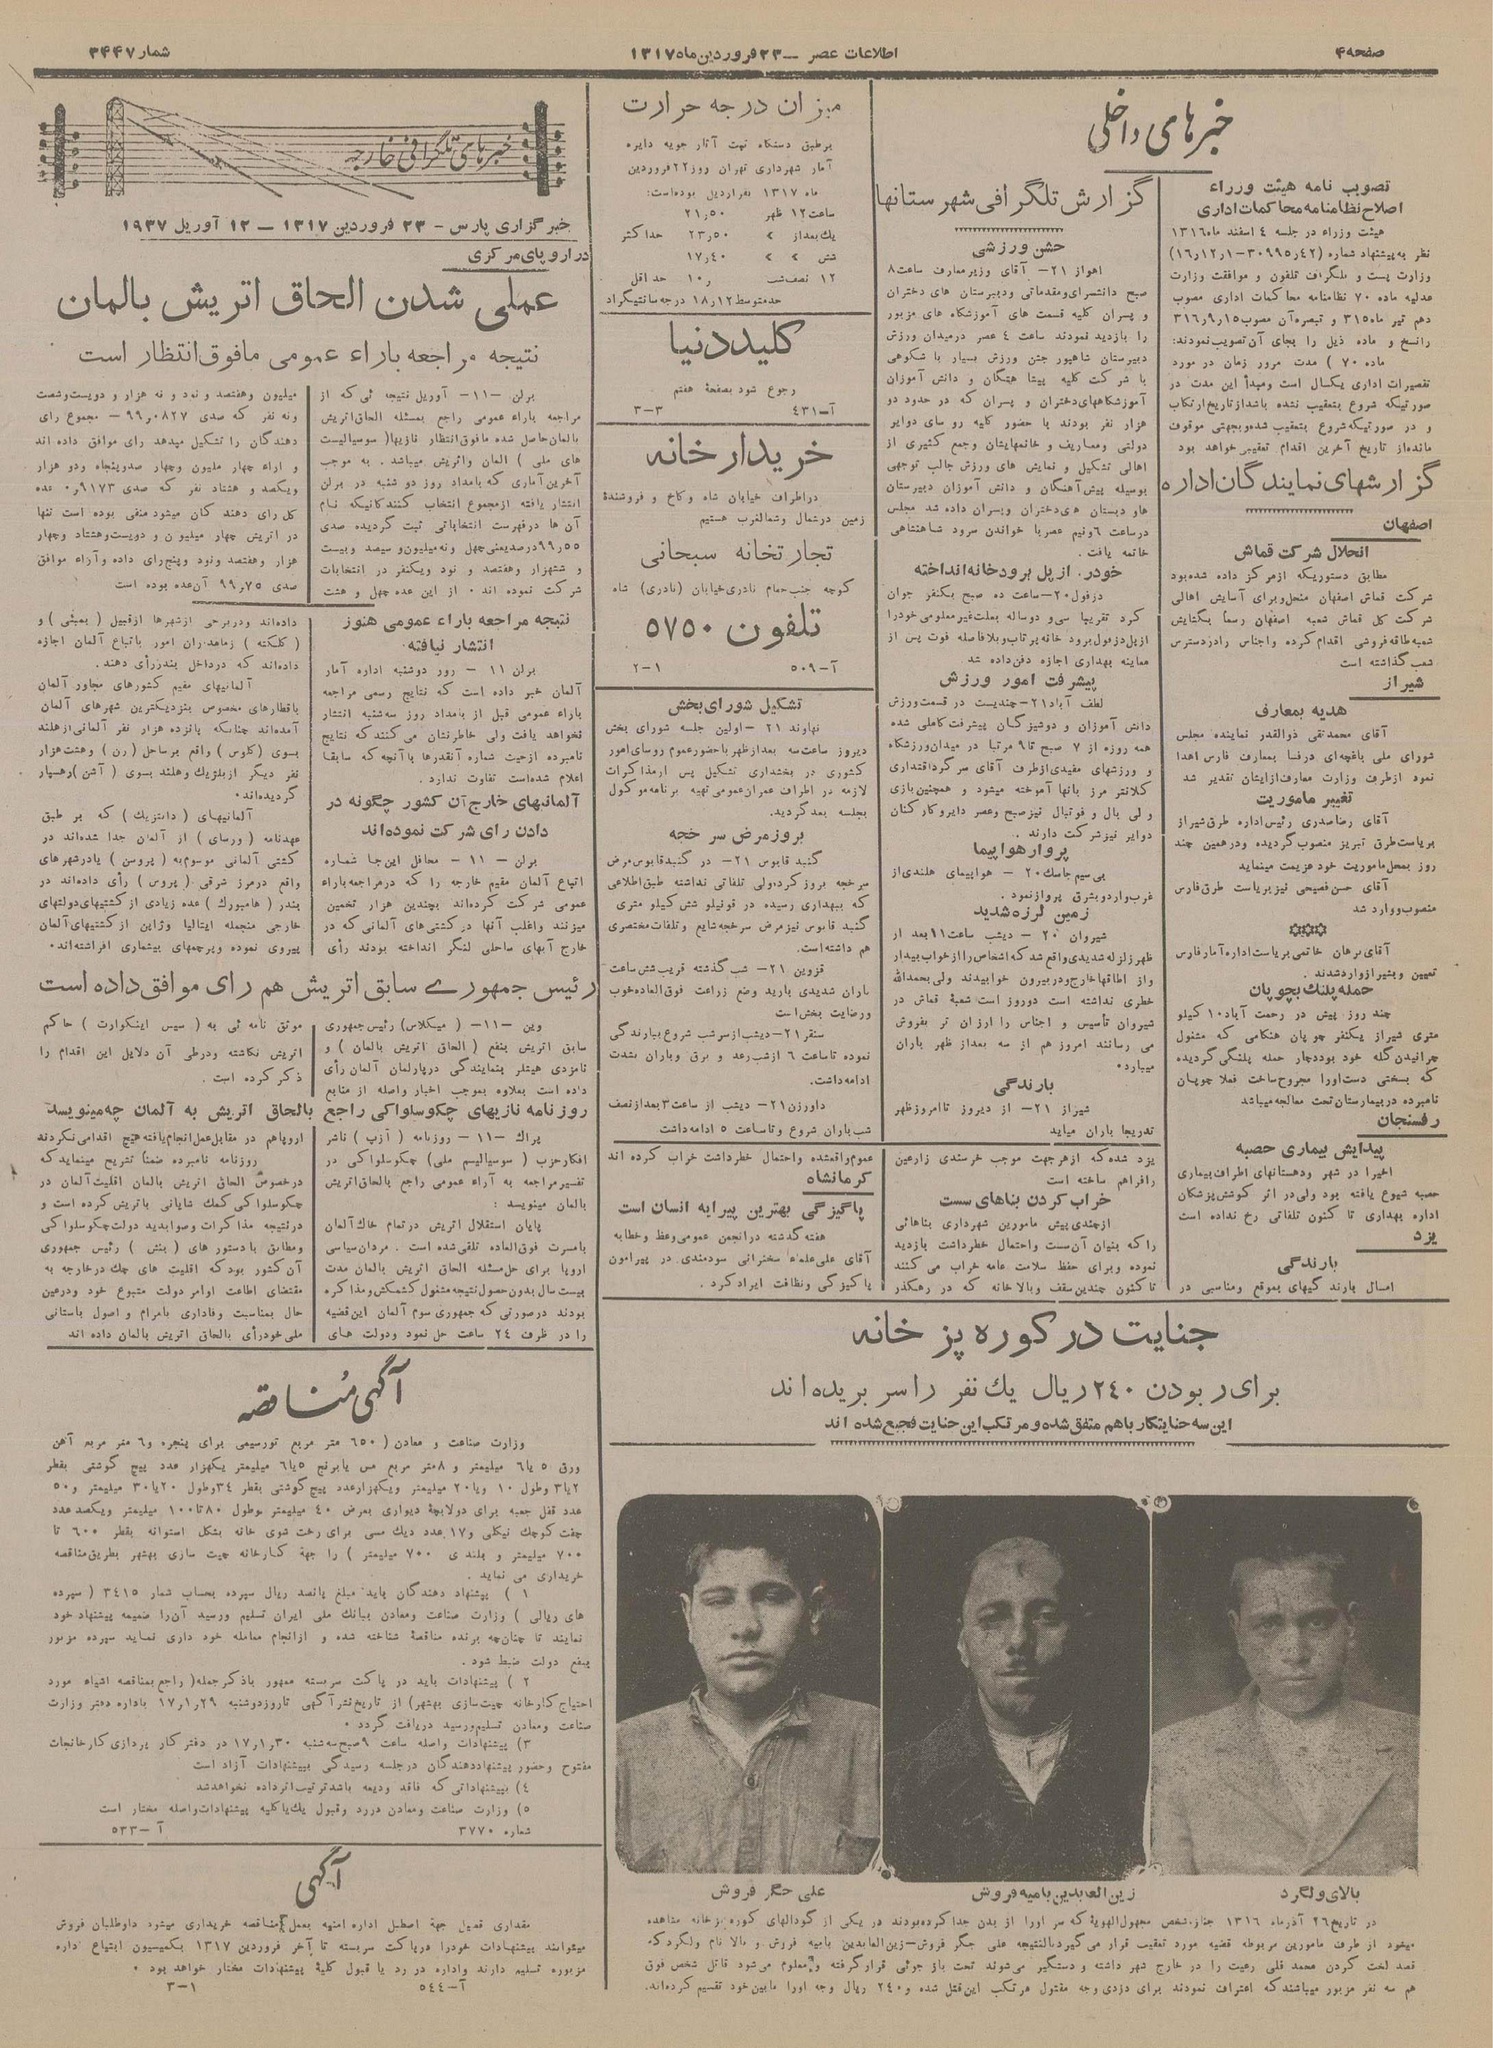 صفحه۴
اطلاعات عصر — ۲۳ فروردین ماه ۱۳۱۷
شمار ۳۴۴۷
خبرهای داخلی
تصویب نامه هیئت وزراء
اصلاح نظامنامه محاکمات اداری
هیئت وزراء در جلسه ٤ اسفند ماه ۱۳۱٦
وزارت پست و تلگراف تلفون و موافقت وزارت
عدلیه ماده ۷۰ نظامنامه محاکمات اداری مصوب
رانسخ و ماده ذیل را بجای آن تصویب نمودند:
ماده ۷۰ ) مدت مرور زمان در مورد
تقصیرات اداری یکسال است ومبدأ این مدت در
صورتیکه شروع بتعقیب نشده باشد از تاریخ ارتکاب
و در صورتیکه شروع بتعقیب شده وبجهتی موقوف
مانده از تاریخ آخرین اقدام تعقیبی خواهد بود
گزارشهای نمایندگان اداره
اصفهان
انحلال شرکت قماش
مطابق دستوریکه از مرکز داده شده بود
شرکت قماش اصفهان منحل وبرای آسایش اهالی
شرکت کل قماش شعبه اصفهان رسماً بگشایش
شعبه طاقه فروشی اقدام کرده واجناس رادردسترس
شعب گذاشته است
شیراز
هدیه بمعارف
آقای محمدتقی ذوالقدر نماینده مجلس
شورای ملی باغچه‌ای در فسا بمعارف فارس اهدا
نمود ازطرف وزارت معارف ازایشان تقدیر شد
تغییر ماموریت
آقای رضا صدری رئیس اداره طرق شیراز
بریاست طرق تبریز منصوب گردیده ودرهمین چند
روز بمحل ماموریت خود عزیمت مینماید
آقای حسن فصیحی نیز بریاست طرق فارس
منصوب ووارد شد
آقای برهان خاتمی بریاست اداره آمار فارس
تعیین وبشیراز وارد شدند .
حمله پلنک بچوپان
چند روز پیش در رحمت آباد ۱۰ کیلو
متری شیراز یکنفر چوپان هنگامی که مشغول
چرانیدن گله خود بود دچار حمله پلنگی گردیده
که بسختی دست اورا مجروح ساخت فعلا چوپان
نامبرده در بیمارستان تحت معالجه میباشد
رفسنجان
پیدایش بیماری حصبه
اخیرا در شهر ودهستانهای اطراف بیماری
حصبه شیوع یافته بود ولی در اثر کوشش پزشکان
اداره بهداری تا کنون تلفاتی رخ نداده است
یزد
بارندگی
امسال بارندگیهای بموقع ومناسبی در
گزارش تلگرافی شهرستانها
جشن ورزشی
اهواز ۲۱- آقای وزیر معارف ساعت ۸
صبح دانشسرای مقدماتی ودبیرستان های دختران
و پسران کلیه قسمت های آموزشگاه های مزبور
را بازدید نمودند ساعت ٤ عصر در میدان ورزش
دبیرستان شاهپور جشن ورزش بسیار با شکوهی
با شرکت کلیه پیشاهنگان و دانش آموزان
آموزشگاههای دختران و پسران که در حدود دو
هزار نفر بودند با حضور کلیه روسای دوایر
دولتی ومعاریف و خانمهایشان وجمع کثیری از
اهالی تشکیل و نمایش های ورزش جالب توجهی
بوسیله پیش آهنگان و دانش آموزان دبیرستان
هاو دبستان های دختران وپسران داده شد مجلس
درساعت ٦ونیم عصر با خواندن سرود شاهنشاهی
خاتمه یافت .
خودرا از پل برودخانه انداخته
دزفول ۲۰- ساعت ده صبح یکنفر جوان
کرد تقریبا سی و دوساله بعلت غیر معلومی خودرا
ازپل دزفول برود خانه پرتاب وبلافاصله فوت پس از
معاینه بهداری اجازه دفن داده شد
پیشرفت امور ورزش
لطف آباد ۲۱- چندیست در قسمت ورزش
دانش آموزان و دوشیزگان پیشرفت کاملی شده
همه روزه از ۷ صبح تا ۹ مرتبا در میدان ورزشگاه
و ورزشهای مفیدی ازطرف آقای سرگرد اقتداری
کلانتر مرز بآنها آموخته میشود و همچنین بازی
ولی بال و فوتبال نیزصبح وعصر دایر وکارکنان
دوایر نیز شرکت دارند .
پرواز هواپیما
بی سیم جاسک ۲۰ - هواپیمای هلندی از
غرب وارد و بشرق پرواز نمود .
زمین لرزه شدید
شیروان ۲۰ - دیشب ساعت ۱۱ بعد از
ظهر زلزله شدیدی واقع شد که اشخاص را از خواب بیدار
واز اطاقها خارج ودر بیرون خوابیدند ولی بحمدالله
خطری نداشته است دو روز است شعبهٔ قماش در
شیروان تأسیس و اجناس را ارزان تر بفروش
می رسانند امروز هم از سه بعداز ظهر باران
میبارد .
بارندگی
شیراز ۲۱- از دیروز تا امروز ظهر
تدریجا باران میاید
یزد شده که ازهر جهت موجب خرسندی زارعین
رافراهم ساخته است
خراب کردن بناهای سست
ازچندی پیش مامورین شهرداری بناهائی
را که بنیان آن سست واحتمال خطر داشت بازدید
نموده وبرای حفظ سلامت عامه خراب می کنند
تا کنون چندین سقف وبالا خانه که در رهگذر
میزان درجه حرارت
برطبق دستگاه ثبت آثار جویه دایره
آمار شهرداری تهران روز ۲۲ فروردین
ماه ۱۳۱۷ بقرار ذیل بوده است:
ساعت ۱۲ ظهر ۲۱٫۵۰
یک بعداز > ۲۳٫۵۰ حداکثر
شش > > ۱۷٫٤۰
۱۲ نصف شب ۱۰٫ حداقل
حد متوسط ۱۸٫۱۲ درجه سانتیگراد
کلید دنیا
رجوع شود بصفحهٔ هفتم
آ-٤۳۱ ۳-۳
خریدار خانه
در اطراف خیابان شاه و کاخ و فروشندهٔ
زمین در شمال وشمالغرب هستیم
تجارتخانه سبحانی
کوچه جنب حمام نادری خیابان (نادری) شاه
تلفون ۵۷۵۰
آ-۵۰۹ ۲-۱
تشکیل شورای بخش
نهاوند ۲۱ - اولین جلسه شورای بخش
دیروز ساعت سه بعدازظهر باحضور عموم روسای امور
کشوری در بخشداری تشکیل پس از مذاکرات
لازمه در اطراف عمران عمومی تهیه برنامه موکول
بجلسه بعد گردید.
بروز مرض سرخجه
گنبد قابوس ۲۱- در گنبد قابوس مرض
سرخجه بروز کرده ولی تلفاتی نداشته طبق اطلاعی
که ببهداری رسیده در قونیلو شش کیلو متری
گنبد قابوس نیز مرض سرخجه شایع و تلفات مختصری
هم داشته است.
قزوین ۲۱- شب گذشته قریب شش ساعت
باران شدیدی بارید وضع زراعت فوق العاده خوب
ورضایت بخش است
سنقر ۲۱- دیشب از سر شب شروع ببارندگی
نموده تا ساعت ٦ از شب رعد و برق وباران بشدت
ادامه داشت.
داورزن ۲۱- دیشب از ساعت ۳ بعد از نصف
شب باران شروع وتا ساعت ۵ ادامه داشت
عموم واقعشده واحتمال خطر داشت خراب کرده اند
کرمانشاه
پاکیزگی بهترین پیرایه انسان است
هفته گذشته در انجمن عمومی وعظ و خطابه
آقای علی علماء سخنرانی سودمندی در پیرامون
پاکیزگی ونظافت ایراد کرد .
خبرهای تلگرافی خارجه
خبرگزاری پارس - ۲۳ فروردین ۱۳۱۷ - ۱۲ آوریل ۱۹۳۷
در اروپای مرکزی
عملی شدن الحاق اتریش بالمان
نتیجه مراجعه باراء عمومی مافوق انتظار است
برلن -۱۱- آوریل نتیجه ئی که از
مراجعه باراء عمومی راجع بمسئله الحاق اتریش
بالمان حاصل شده مافوق انتظار نازیها( سوسیالیست
های ملی ) المان واتریش میباشد . به موجب
آخرین آماری که بامداد روز دو شنبه در برلن
انتشار یافته ازمجموع انتخاب کنندگانیکه نام
آن ها درفهرست انتخاباتی ثبت گردیده صدی
۹۹٫۵۵ درصد یعنی چهل ونه میلیون و سیصد وبیست
و ششهزار وهفتصد و نود ویکنفر در انتخابات
شرکت نموده اند . از این عده چهل و هشت
میلیون وهفتصد و نود و نه هزار و دویست وشصت
ونه نفر که صدی ۹۹٫۰۸۲۷ - مجموع رای
دهندگان را تشکیل میدهد رای موافق داده اند
و اراء چهار ملیون وچهار صدوپنجاه ودو هزار
ویکصد و هشتاد نفر که صدی ۰٫۹۱۷۳ عده
کل رای دهندگان میشود منفی بوده است تنها
در اتریش چهار میلیون و دویست وهشتاد وچهار
هزار وهفتصد ونود وپنج رای داده وآراء موافق
صدی ۹۹٫۷۵ آن عده بوده است
نتیجه مراجعه باراء عمومی هنوز
انتشار نیافته
برلن ۱۱ - روز دوشنبه اداره آمار
آلمان خبر داده است که نتایج رسمی مراجعه
باراء عمومی قبل از بامداد روز سه شنبه انتشار
نخواهد یافت ولی خاطرنشان می کنند که نتایج
نامبرده ازحیث شماره آنقدرها باآنچه که سابقا
اعلام شده است تفاوت ندارد .
آلمانیهای خارج آن کشور چگونه در
دادن رای شرکت نموده اند
برلن - ۱۱ - محافل این جا شماره
اتباع آلمان مقیم خارجه را که درمراجعه باراء
عمومی شرکت کرده‌اند بچندین هزار تخمین
میزنند واغلب آنها در کشتی های آلمانی که در
خارج آبهای ساحلی لنگر انداخته بودند رأی
داده‌اند ودر برخی از شهرها ازقبیل ( بمبئی ) و
( کلکته ) زمامداران امور باتباع آلمان اجازه
داده‌اند که در داخل بندر رأی دهند .
آلمانیهای مقیم کشورهای مجاور آلمان
باقطارهای مخصوص بنزدیکترین شهرهای آلمان
آمده‌اند چنانکه پانزده هزار نفر آلمانی از هلند
بسوی (کلوس ) واقع برساحل (رن ) وهشت هزار
نفر دیگر از بلژیک وهلند بسوی ( آشن ) رهسپار
گردیده‌اند .
آلمانیهای ( دانتزیک ) که بر طبق
عهدنامه ( ورسای ) از آلمان جدا شده‌اند در
کشتی آلمانی موسوم به ( پروسن ) یا در شهرهای
واقع درمرز شرقی ( پروس ) رأی داده‌اند در
بندر ( هامبورک ) عده زیادی از کشتیهای دولتهای
خارجی منجمله ایتالیا وژاپن از کشتیهای آلمان
پیروی نموده وپرچمهای بیشماری افراشته‌اند .
رئیس جمهوری سابق اتریش هم رای موافق داده است
وین -۱۱- ( میکلاس) رئیس جمهوری
سابق اتریش بنفع ( الحاق اتریش بالمان ) و
نامزدی هیتلر بنمایندگی در پارلمان آلمان رأی
داده است بعلاوه بموجب اخبار واصله از منابع
موثق نامه ئی به ( سیس اینکوارت ) حاکم
اتریش نگاشته ودرطی آن دلایل این اقدام را
ذکر کرده است .
روزنامه نازیهای چکوسلواکی راجع بالحاق اتریش به آلمان چه مینویسد
پراک -۱۱- روزنامه ( آزپ ) ناشر
افکار حزب ( سوسیالیسم ملی ) چکوسلواکی در
تفسیر مراجعه به آراء عمومی راجع بالحاق اتریش
بالمان مینویسد :
پایان استقلال اتریش در تمام خاک آلمان
بامسرت فوق العاده تلقی شده است . مردان سیاسی
اروپا برای حل مسئله الحاق اتریش بالمان مدت
بیست سال بدون حصول نتیجه مشغول کشمکش ومذاکره
بودند درصورتی که جمهوری سوم آلمان این قضیه
را در ظرف ۲٤ ساعت حل نمود ودولت های
اروپا هم در مقابل عمل انجام یافته هیچ اقدامی نکردند
روزنامه نامبرده ضمنا تشریح مینماید که
درخصوص الحاق اتریش بالمان اقلیت آلمان در
چکوسلواکی کمک شایانی باتریش کرده است و
درنتیجه مذاکرات وصوابدید دولت چکوسلواکی
ومطابق با دستور های ( بنش ) رئیس جمهوری
آن کشور بود که اقلیت های چک در خارجه به
مقتضای اطاعت اوامر دولت متبوع خود ودرعین
حال بمناسبت وفاداری بامرام و اصول باستانی
ملی خود رأی بالحاق اتریش بالمان داده اند
جنایت در کوره پز خانه
برای ربودن ۲٤۰ ریال یک نفر را سر بریده اند
این سه جنایتکار باهم متفق شده و مرتکب این جنایت فجیع شده اند
بالای ولگرد
زین العابدین بامیه فروش
علی جگر فروش
در تاریخ ۲٦ آذرماه ۱۳۱٦ جنازه شخص مجهول الهویهٔ که سر اورا از بدن جدا کرده بودند در یکی از گودالهای کوره پزخانه مشاهده
میشود از طرف مامورین مربوطه قضیه مورد تعقیب قرار می گیرد بالنتیجه علی جگر فروش-زین العابدین بامیه فروش و بالا نام ولگرد که
قصد لخت کردن محمد قلی رعیت را در خارج شهر داشته و دستگیر می‌شوند تحت باز جوئی قرار گرفته و معلوم می‌شود قاتل شخص فوق
هم سه نفر مزبور میباشند که اعتراف نمودند برای دزدی وجه مقتول مرتکب این قتل شده و ۲٤۰ ریال وجه اورا مابین خود تقسیم کرده‌اند.
آگهی مناقصه
وزارت صناعت و معادن ( ٦۵۰ متر مربع تورسیمی برای پنجره و٦ متر مربع آهن
ورق ۵ یا٦ میلیمتر و ۸متر مربع مس یابرنج ۵یا٦ میلیمتر یکهزار عدد پیچ گوشتی بقطر
۲یا۳ وطول ۱۰ ویا۲۰ میلیمتر ویکهزار عدد پیچ گوشتی بقطر ۳٤ وطول ۲۰یا۳۰ میلیمتر و۵۰
عدد قفل جعبه برای دولابچهٔ دیواری بعرض ٤۰ میلیمتر وطول ۸۰تا۱۰۰ میلیمتر ویکصد عدد
جفت کوچک نیکلی و۱۷ عدد دیک مسی برای رخت شوی خانه بشکل استوانه بقطر ٦۰۰ تا
۷۰۰ میلیمتر و بلندی ۷۰۰ میلیمتر ) را جهة کارخانه چیت سازی بهشهر بطریق مناقصه
خریداری می نماید .
۱ ) پیشنهاد دهندگان باید مبلغ پانصد ریال سپرده بحساب شمار ۳٤۱۵ ( سپرده
های ریالی ) وزارت صناعت ومعادن ببانک ملی ایران تسلیم ورسید آن را ضمیمه پیشنهاد خود
نمایند تا چنانچه برنده مناقصهٔ شناخته شده و ازانجام معامله خود داری نماید سپرده مزبور
بنفع دولت ضبط شود .
۲ ) پیشنهادات باید در پاکت سربسته ممهور باذکرجمله( راجع بمناقصه اشیاء مورد
احتیاج کارخانه چیت سازی بهشهر) از تاریخ نشر آگهی تا روزدوشنبه ۱۷٫۱٫۲۹ باداره دفتر وزارت
صناعت ومعادن تسلیم ورسید دریافت گردد .
۳) پیشنهادات واصله ساعت ۹صبح سه شنبه ۱۷٫۱٫۳۰ در دفتر کار پردازی کارخانجات
مفتوح وحضور پیشنهاددهندگان درجلسه رسیدگی بپیشنهادات آزاد است
٤) بپیشنهاداتی که فاقد ودیعه باشد ترتیب اثر داده نخواهد شد
۵) وزارت صناعت ومعادن در رد وقبول یک یا کلیه پیشنهادات واصله مختار است
شماره ۳۷۷۰ آ -۵۳۳
آگهی
مقداری قصیل جهة اصطبل اداره امنیه بعمل مناقصه خریداری میشود داوطلبان فروش
میتوانند پیشنهادات خودرا در پاکت سربسته تا آخر فروردین ۱۳۱۷ بکمیسیون ابتیاع داره
مزبوره تسلیم دارند واداره در رد یا قبول کلیهٔ پیشنهادات مختار خواهد بود .
آ-۵٤٤ ۳-۱